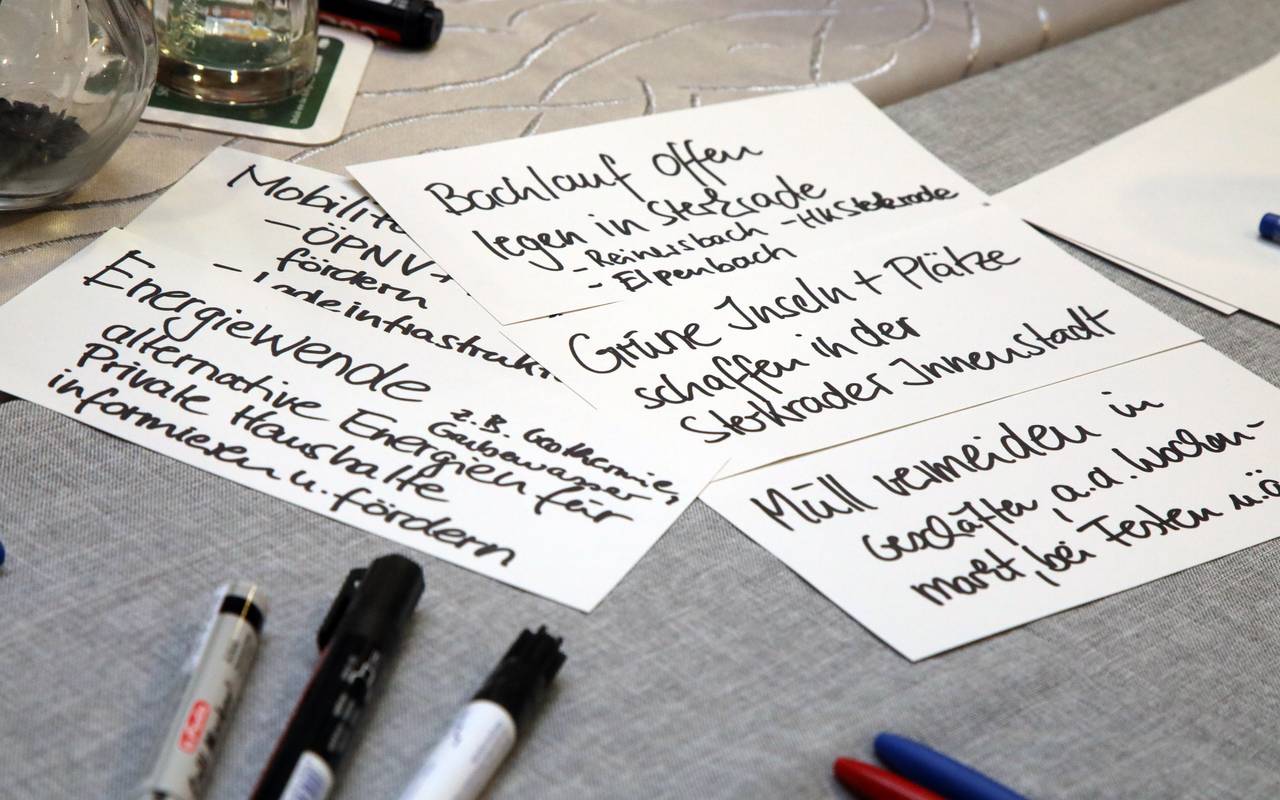 Mobilit
- ÖPNV +
fördern
- Ladeinfrastrukt
Bachlauf offen
legen in Sterkrade
- Reinersbach - HK Sterkrade
- Elpenbach
Energiewende
alternative Energien für
z.B. Geothermie,
Grubenwasser
Private Haushalte
informieren u. fördern
Grüne Inseln + Plätze
schaffen in der
Sterkrader Innenstadt
Müll vermeiden in
Geschäften, a.d. Wochen-
markt, bei Festen u.ä